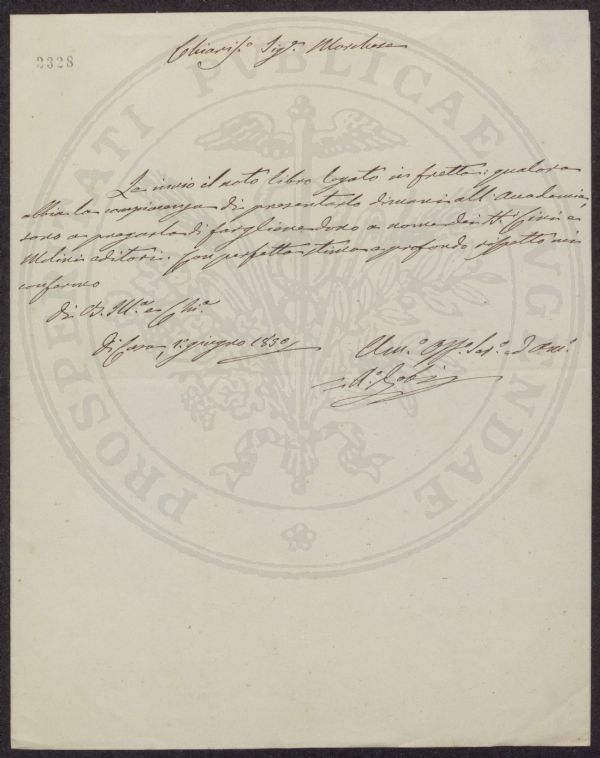 2328
Chiariss.º Sigr. Marchese
Le invio il noto libro legato in fretta: qualora
abbia la compiacenza di presentarlo dinanzi all'Accademia
sono a pregarla di fargliene dono a nome dei
editori. Con perfetta stima e profondo rispetto mi
confermo
Di
Di Casa, 1º giugno 1850
PROSPERITATI PUBLICAE AUGENDAE